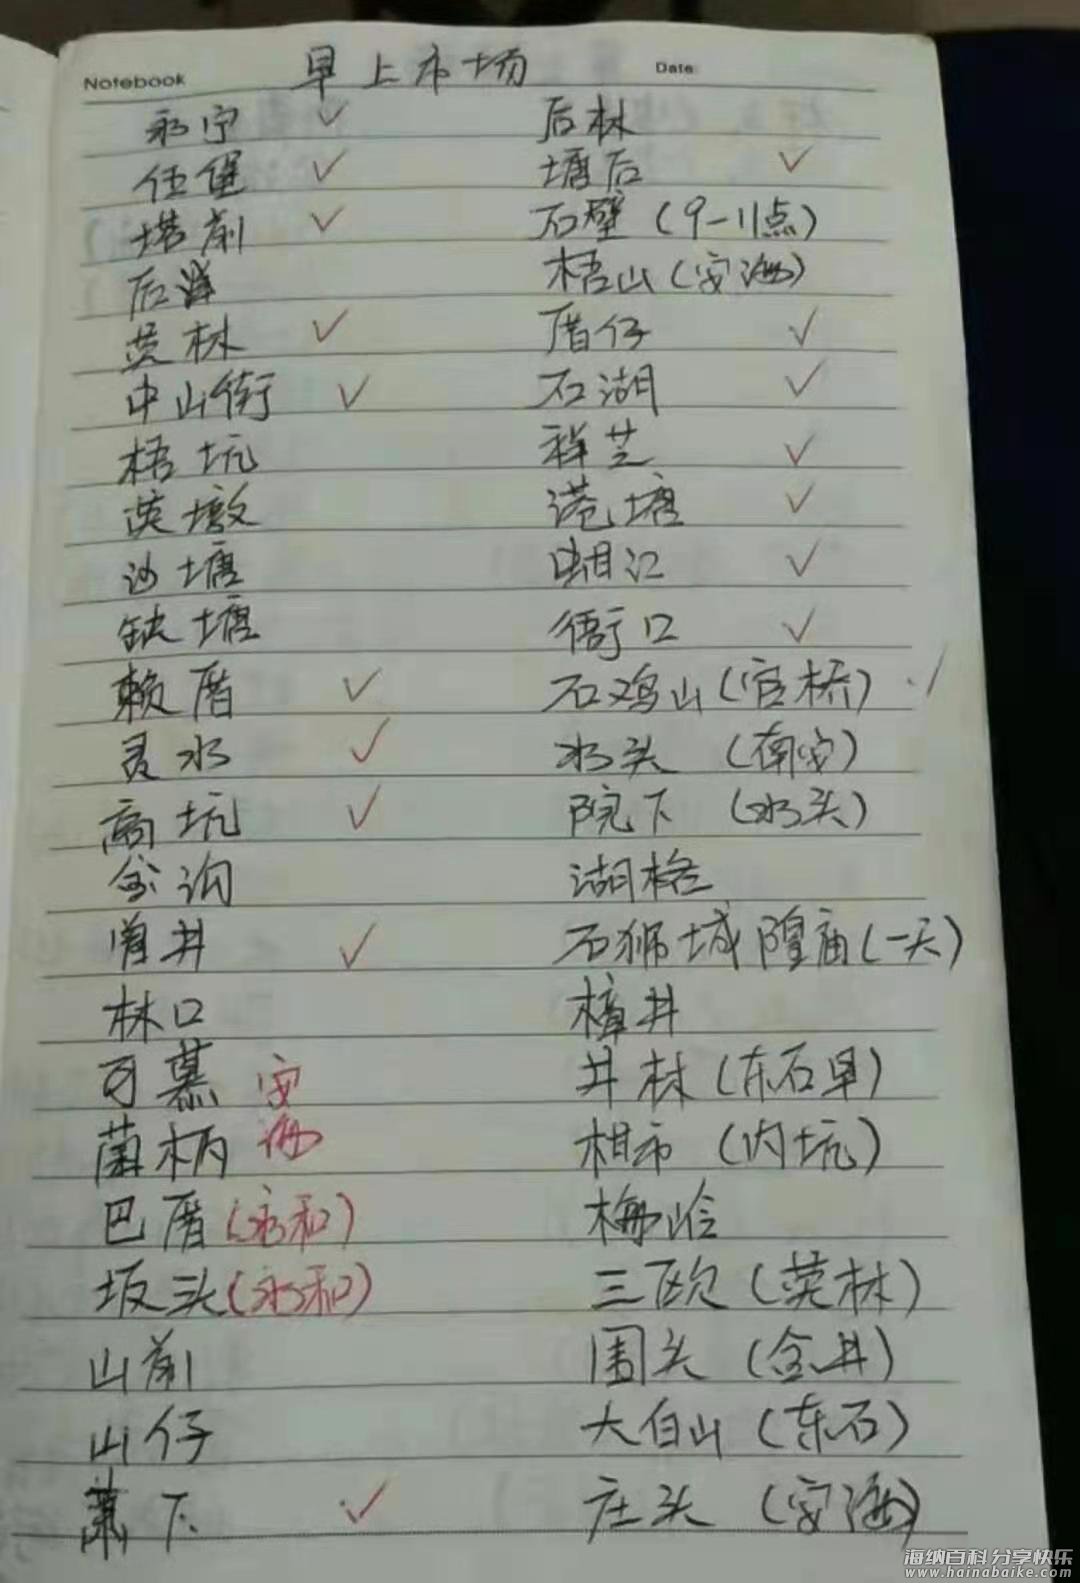 Notebook 早上市场 Date:
永宁 ✓ 后林
伍堡 ✓ 塘后 ✓
塔前 ✓ 石壁(9-11点)
后 梧山(安海)
英林 ✓ 厝仔 ✓
中山街 ✓ 石湖 ✓
梧坑 祥芝 ✓
英墩 港塘 ✓
沙塘 蚶江 ✓
缺塘 衙口 ✓
赖厝 ✓ 石鸡山(官桥) ✓
灵水 ✓ 水头 (南安)
高坑 ✓ 院下 (水头)
金 湖格
曾井 ✓ 石狮城隍庙(一天)
林口 樟井
可慕 安海 井林(东石早)
菌柄 相市 (内坑)
巴厝(永和) 梅岭
坂头(永和) 三欧(英林)
山前 围头 (金井)
山仔 大白山(东石)
萧下 ✓ 庄头 (安海)
海纳百科分享快乐
www.hainabaike.com